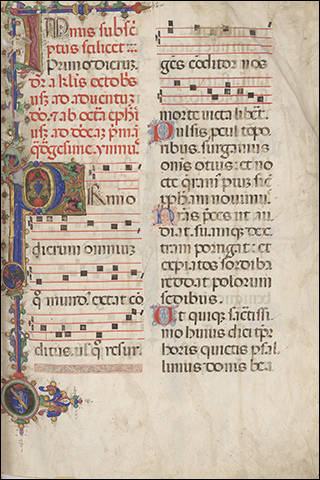 Imnus subsc̄
ptus scilicet
Primo dieruʒ
dr̄ a kl̄is octobr̄
usqʒ ad aduentuʒ
dn̄i. & ab octā ephie
usqʒ ad dn̄icaʒ p̄mā
q̄dgesime. ymnus
PRimo
dierum omniuʒ
q̄ mundus extat cō
ditus. uel q̄ resur
gēs cōditor nos
morte uicta liberet.
Pulsis procul torpo
ribus. surgamus
om̄s otius: et no
cte q̄ramus pium sic
ppham nouimus.
Nr̄as preces ut au
diat. suamqʒ dex
tram porrigat: et
expiatos sordibus
reddat polorum
sedibus.
Ut quiqʒ sac̄tissi
mo huius diei tpr̄
horis quietis psal
limus donis bea